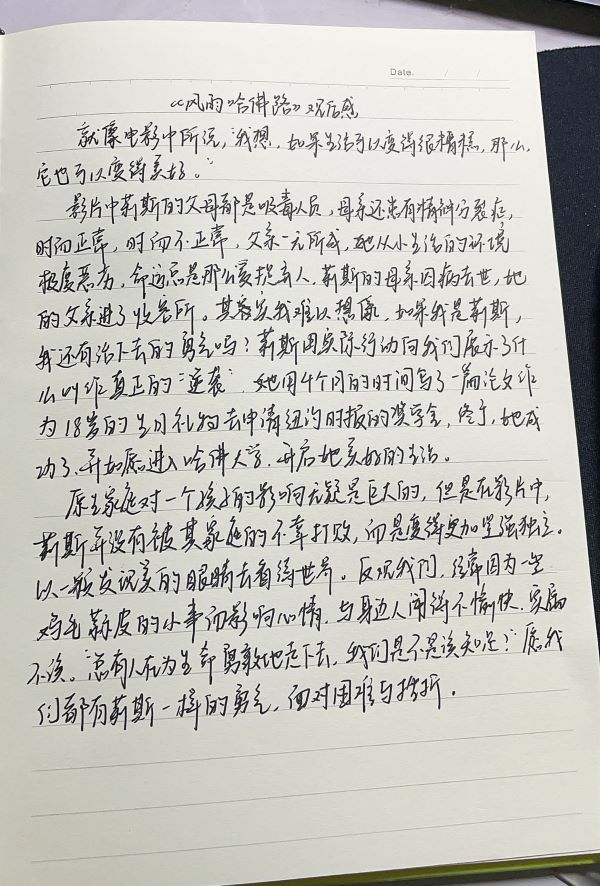 Date. / /
《风雨哈佛路》观后感
就像电影中所说，“我想，如果生活可以变得很糟糕，那么，
它也可以变得美好。”
影片中莉斯的父母都是吸毒人员，母亲还患有精神分裂症，
时而正常，时而不正常，父亲一无所成，她从小生活的环境
极度恶劣，命运总是那么爱捉弄人，莉斯的母亲因病去世，她
的父亲进了收容所。其实我难以想像，如果我是莉斯，
我还有活下去的勇气吗？莉斯用实际行动向我们展示了什
么叫作真正的“逆袭”，她用4个月的时间写了一篇论文作
为18岁的生日礼物去申请纽约时报的奖学金，终于，她成
功了，并如愿进入哈佛大学，开启她美好的生活。
原生家庭对一个孩子的影响无疑是巨大的，但是在影片中，
莉斯并没有被其家庭的不幸打败，而是变得更加坚强独立。
以一双发现美的眼睛去看待世界。反观我们，经常因为一些
鸡毛蒜皮的小事而影响心情，与身边人闹得不愉快，实属
不该。“总有人在为生命勇敢地走下去，我们是不是该知足？”愿我
们都有莉斯一样的勇气，面对困难与挫折。